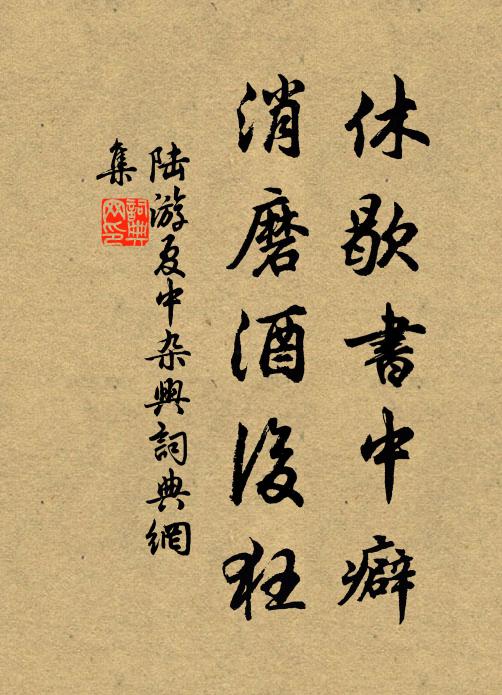 休歇書中癖
消磨酒後狂
陸游夏中杂興詞典網
集
詞典
网印